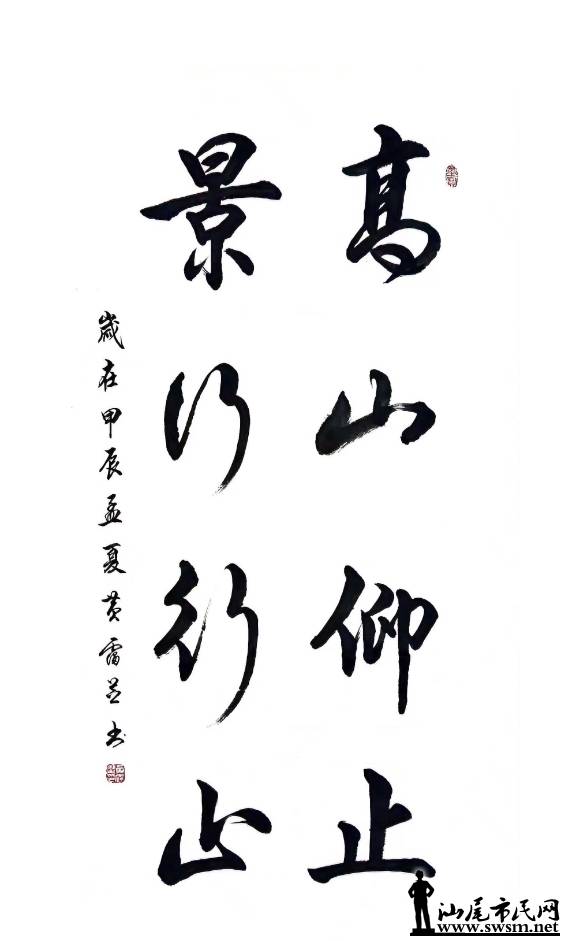 高山仰止
景行行止
歲在甲辰孟夏黄雷书
汕尾市民网
www.swsm.net